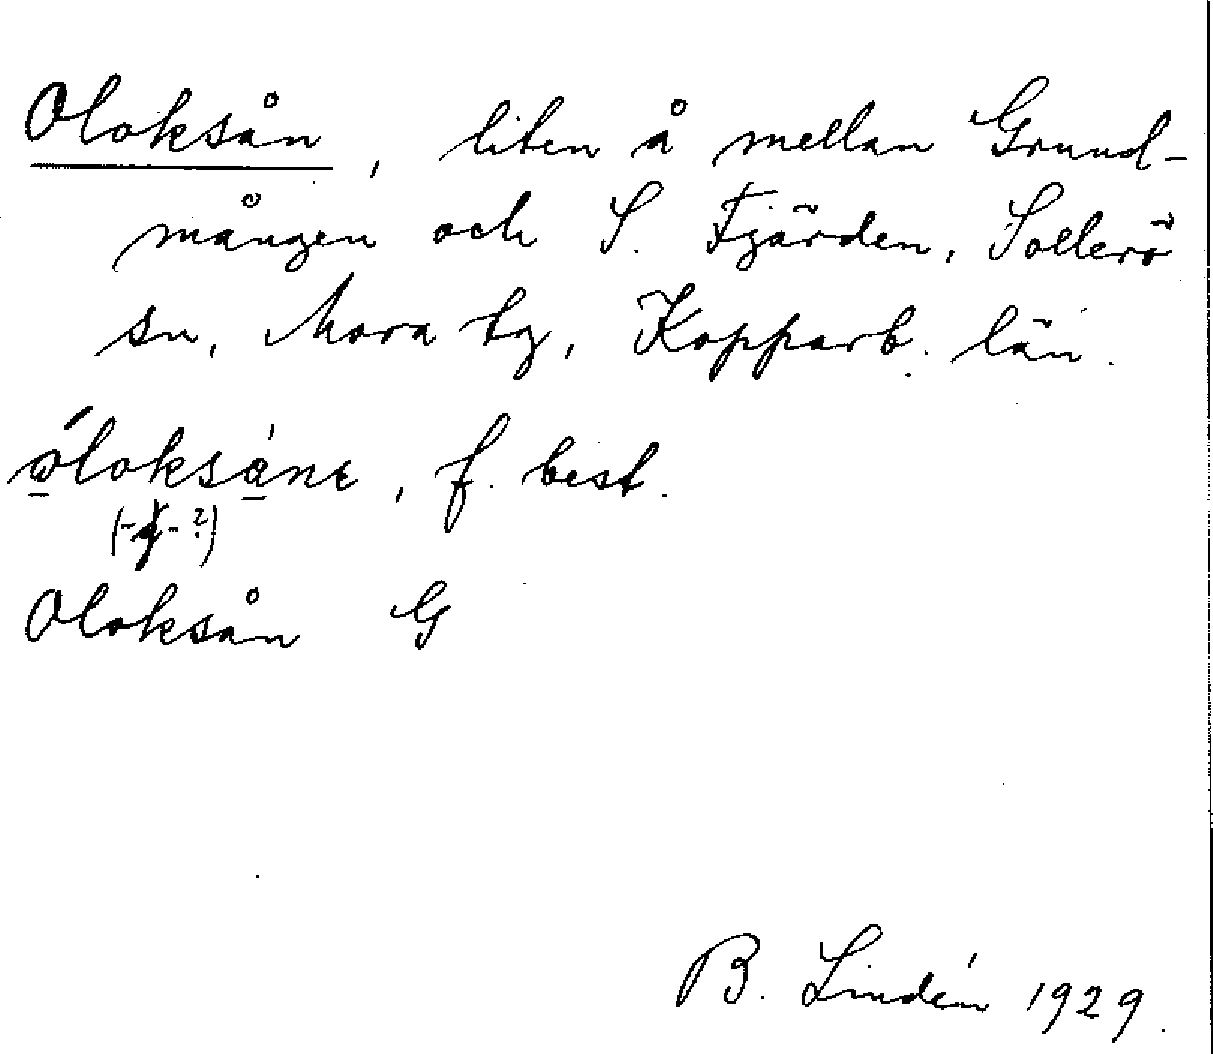 Oloksån, liten å mellan Grund-
mången och S. Fjärden, Sollerö
sn, Mora tg, Kopparb. län.
óloksånɛ, f. best.
Oloksån G
B. Lindén 1929.